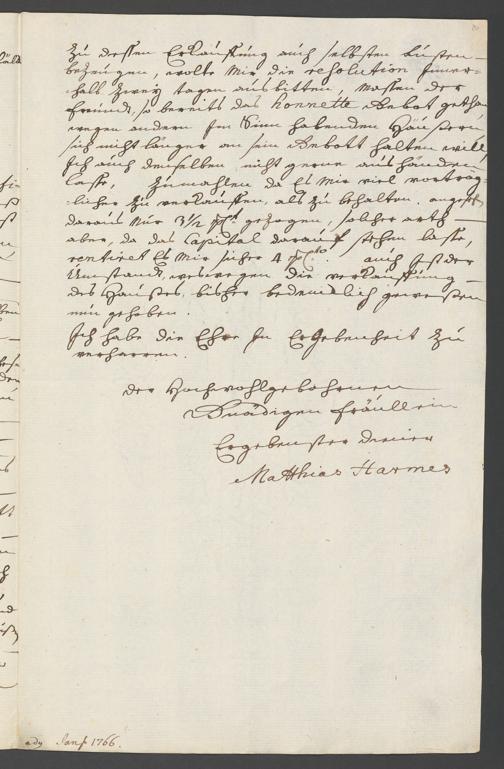 Zu dessen Erkauffung auch selbsten lusten
bezeugen, wolte Mir die resolution Inner-
halb Zwey tagen ausbitten, Massen der
freund, so bereits das honnette Anbot gethan
wegen andern Im Sinn habenden Häussern
sich nicht länger an sein Anbott halten will,
Ich auch denselben nicht gerne aus händen
lasse, Zumahlen da Es Mir viel vorträg-
licher Zu verkauffen, als Zu behalten. angesehn
daraus Nur 3 1/2 gezogen, solcher arth
aber, da das Capital darauf stehen lasse,
rentiret Es Mir sicher 4 auch Ist der
Umstand, weswegen die verkauffung
des Hauses, bisher bedencklich gewessen
nun gehoben.
Ich habe die Ehre In Ergebenheit Zu
verharren.
der Hochwohlgebohrnen
Gnädigen fräullein
Ergebenster diener
Matthias Harmes
ady Janr 1766.